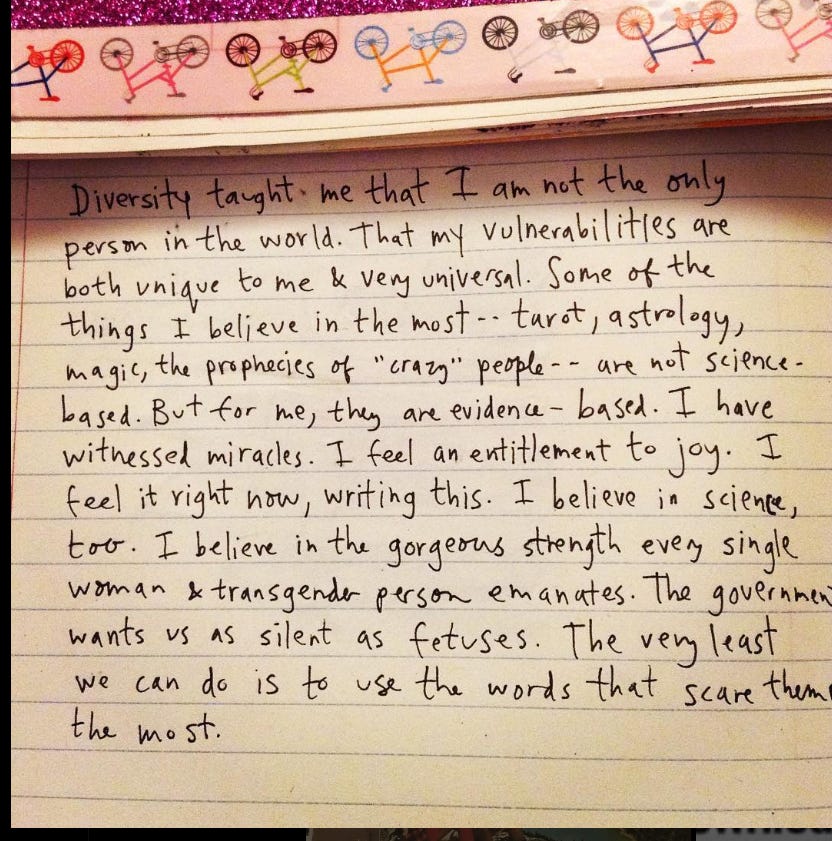 Diversity taught me that I am not the only
person in the world. That my vulnerabilities are
both unique to me & very universal. Some of the
things I believe in the most -- tarot, astrology,
magic, the prophecies of "crazy" people -- are not science-
based. But for me, they are evidence-based. I have
witnessed miracles. I feel an entitlement to joy. I
feel it right now, writing this. I believe in science,
too. I believe in the gorgeous strength every single
woman & transgender person emanates. The governmen
wants us as silent as fetuses. The very least
we can do is to use the words that scare them
the most.